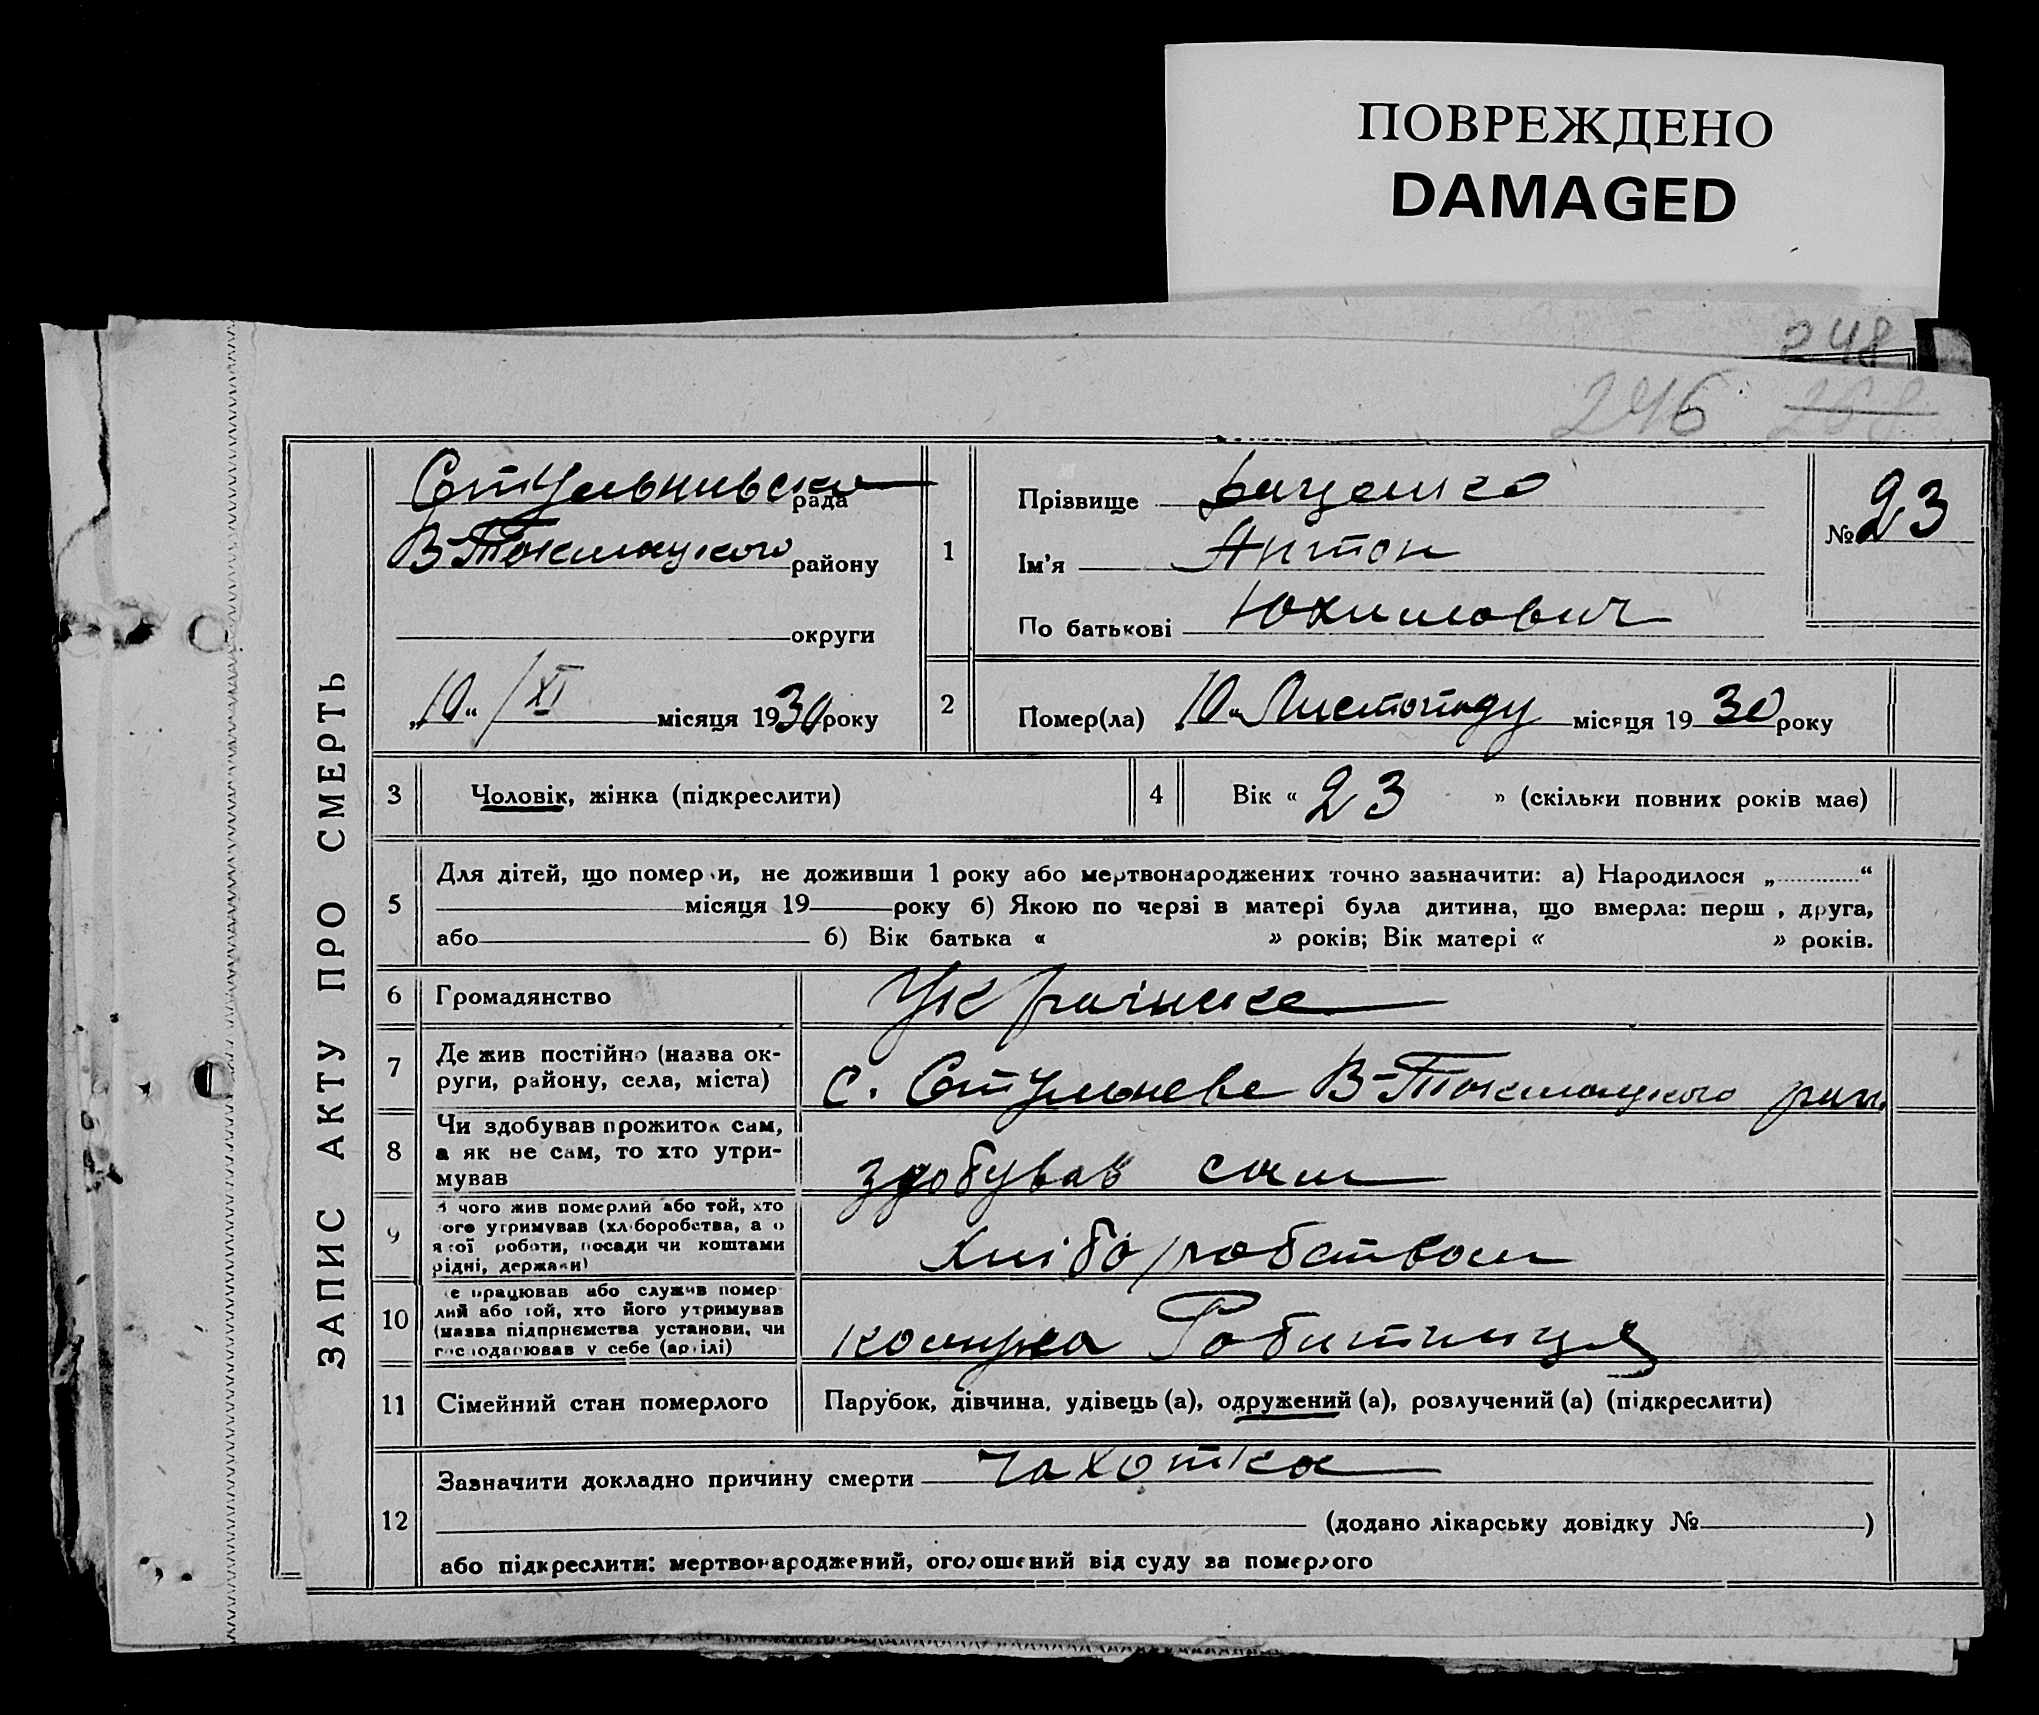 ПОВРЕЖДЕНО
DAMAGED
248
246 268
ЗАПИС АКТУ ПРО СМЕРТЬ
рада
В-Токмацького району
округи
„10“ /XI місяця 1930 року
1
Прізвище Баценко
Ім'я Антон
По батькові Юхимович
№ 23
2
Помер(ла) „10“ Листопаду місяця 1930 року
3 Чоловік, жінка (підкреслити)
4 Вік « 23 » (скільки повних років має)
5
Для дітей, що померли, не доживши 1 року або мертвонароджених точно зазначити: а) Народилося „ “
місяця 19 року б) Якою по черзі в матері була дитина, що вмерла: перш , друга,
або б) Вік батька « » років; Вік матері « » років.
6 Громадянство Українске
7 Де жив постійно (назва ок-
руги, району, села, міста) с. В-Токмацького рай.
8 Чи здобував прожиток сам,
а як не сам, то хто утри-
мував здобував сам
9 З чого жив померлий або той, хто
ого утримував (хліборобства, а о
якої роботи, посади чи коштами
рідні, держави) хліборобством
10 е працював або служив помер-
лий або той, хто його утримував
(назва підприємства установи, чи
господарював у себе (артілі) комуна Робитниця
11 Сімейний стан померлого Парубок, дівчина, удівець (а), одружений (а), розлучений (а) (підкреслити)
12
Зазначити докладно причину смерти чахотка
(додано лікарську довідку № )
або підкреслити: мертвонароджений, оголошений від суду за померлого